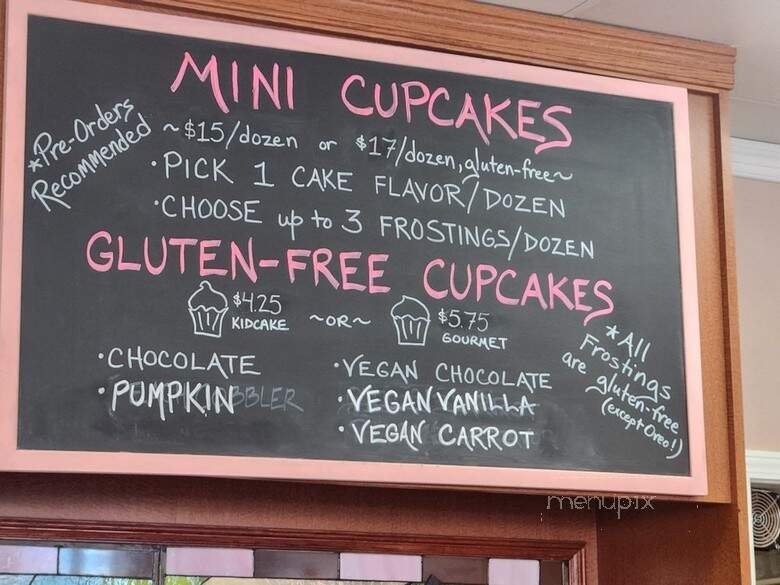 MINI CUPCAKES
*Pre-Orders
Recommended
~$15/dozen or $17/dozen, gluten-free~
·PICK 1 CAKE FLAVOR/DOZEN
·CHOOSE up to 3 FROSTINGS/DOZEN
GLUTEN-FREE CUPCAKES
$4.25
KIDCAKE
~OR~
$5.75
GOURMET
·CHOCOLATE
·PUMPKIN
·VEGAN CHOCOLATE
·VEGAN VANILLA
·VEGAN CARROT
*All
Frostings
are gluten-free
(except Oreo!)
menupix